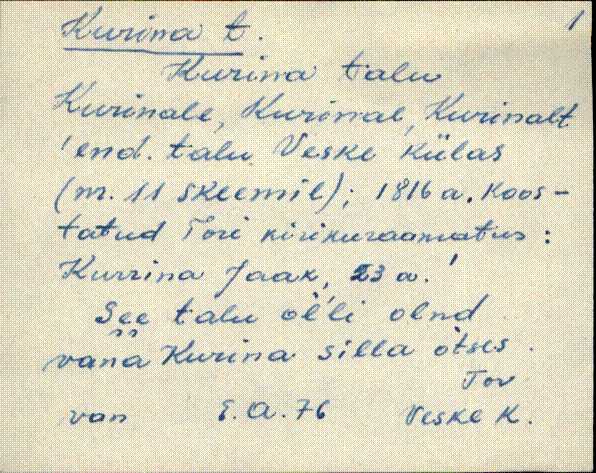 Kurina t. 1
Kurina talu
Kurinale, Kurinal, Kurinalt
'end. talu Veske külas
(nr. 11 skeemil); 1816 a. koos-
tatud Tori kirikuraamatus:
Kurrina Jaak, 23 a.'
See talu oĺli olnd
vana Kurina silla õtses.
Tor
van E.A.76 Veske k.